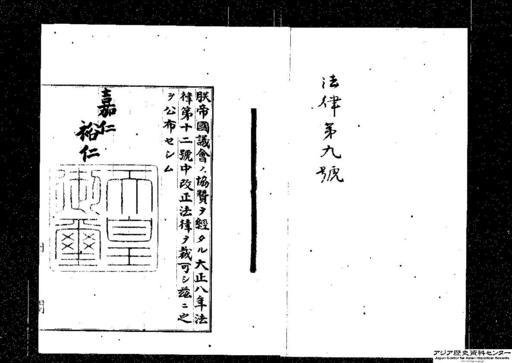 法律第九號
朕帝國議會ノ協賛ヲ經タル大正八年法
律第十二號中改正法律ヲ裁可シ茲ニ之
ヲ公布セシム
嘉仁
裕仁
天皇
御璽
アジア歴史資料センター
Japan Center for Asian Historical Records